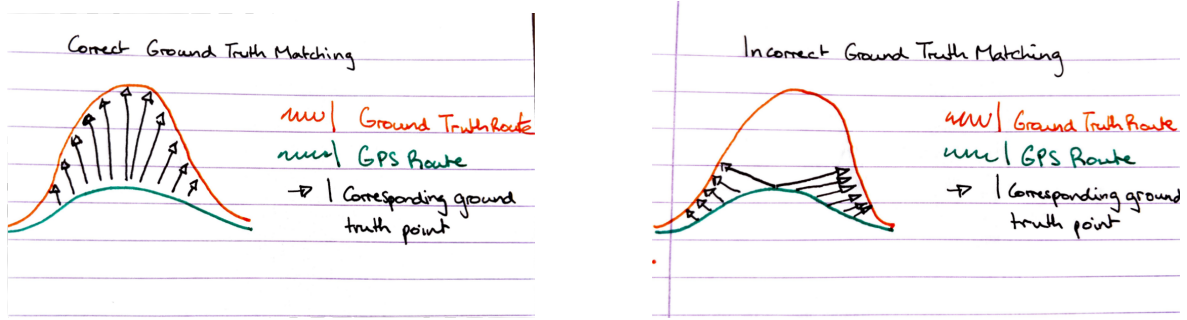 Correct Ground Truth Matching
Ground Truth Route
GPS Route
Corresponding ground
truth point
Incorrect Ground Truth Matching
Ground Truth Route
GPS Route
Corresponding ground
truth point